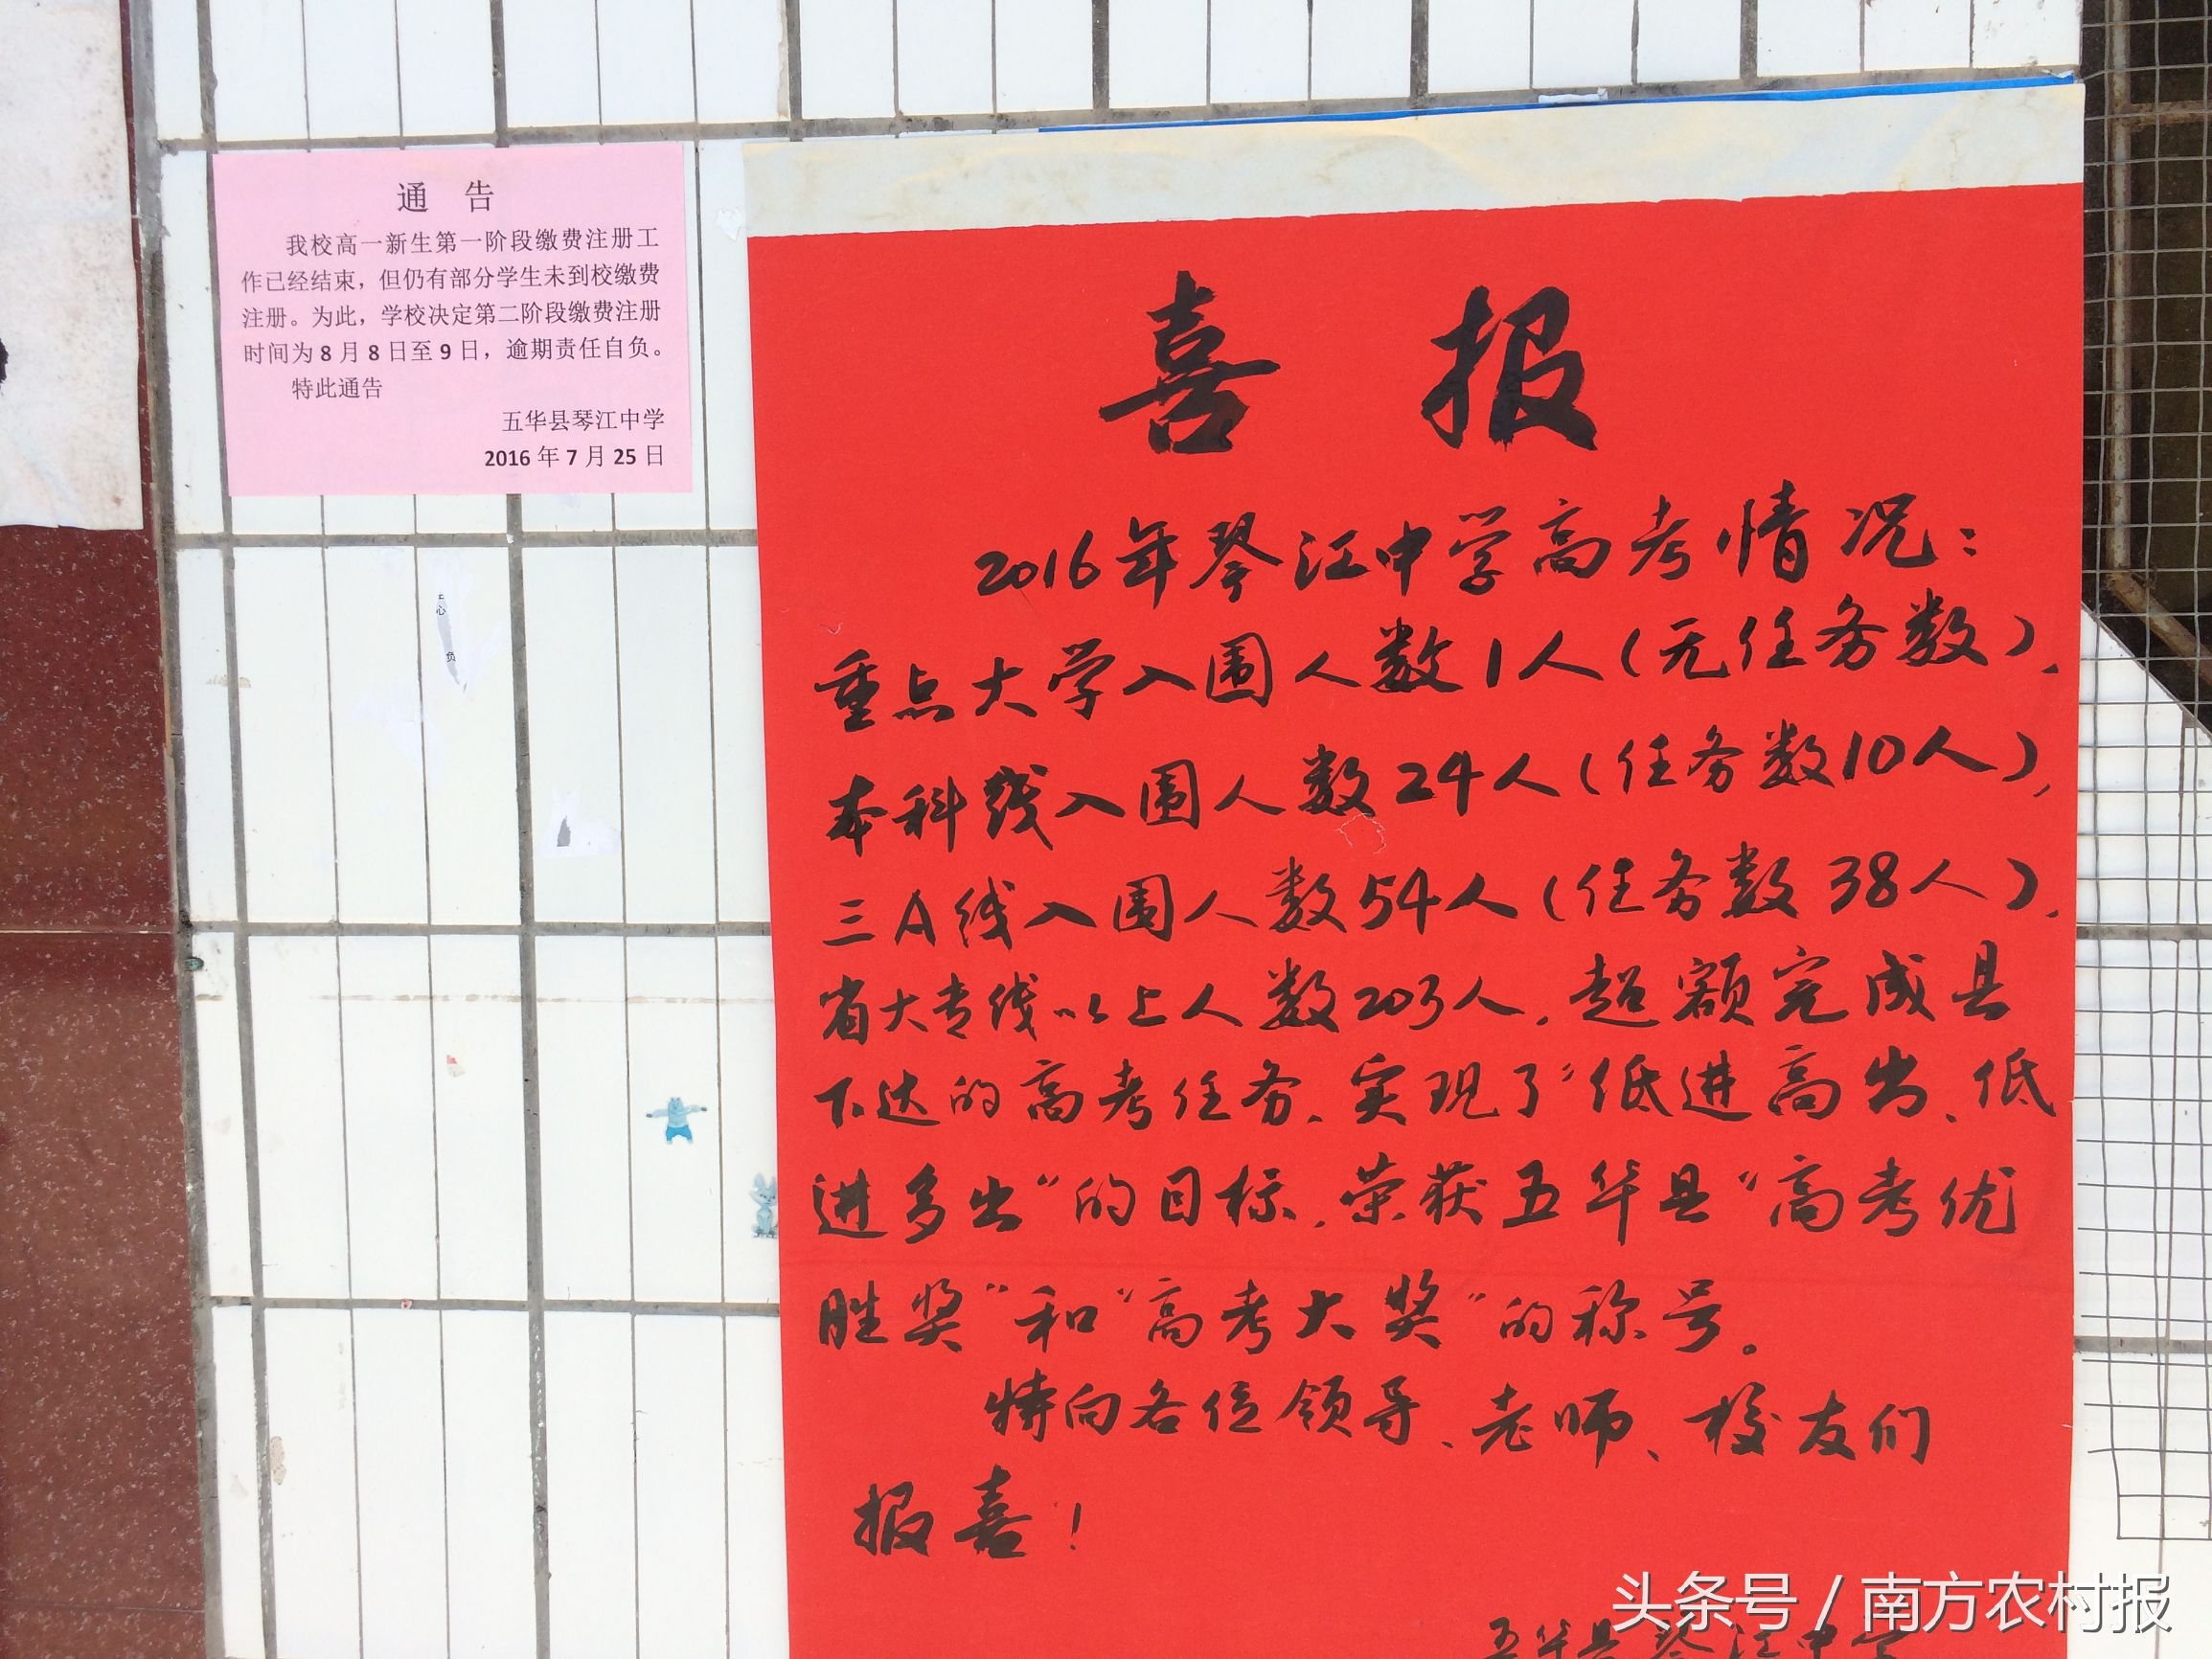 通 告
我校高一新生第一阶段缴费注册工
作已经结束，但仍有部分学生未到校缴费
注册。为此，学校决定第二阶段缴费注册
时间为8月8日至9日，逾期责任自负。
特此通告
五华县琴江中学
2016年7月25日
喜 报
2016年琴江中学高考情况：
重点大学入围人数1人(无任务数)，
本科线入围人数24人(任务数10人)，
三A线入围人数54人(任务数38人)，
省大专线以上人数203人，超额完成县
下达的高考任务，实现了"低进高出、低
进多出"的目标，荣获五华县"高考优
胜奖"和"高考大奖"的称号。
特向各位领导、老师、校友们
报喜！
五华县琴江中学
心
负
头条号 / 南方农村报